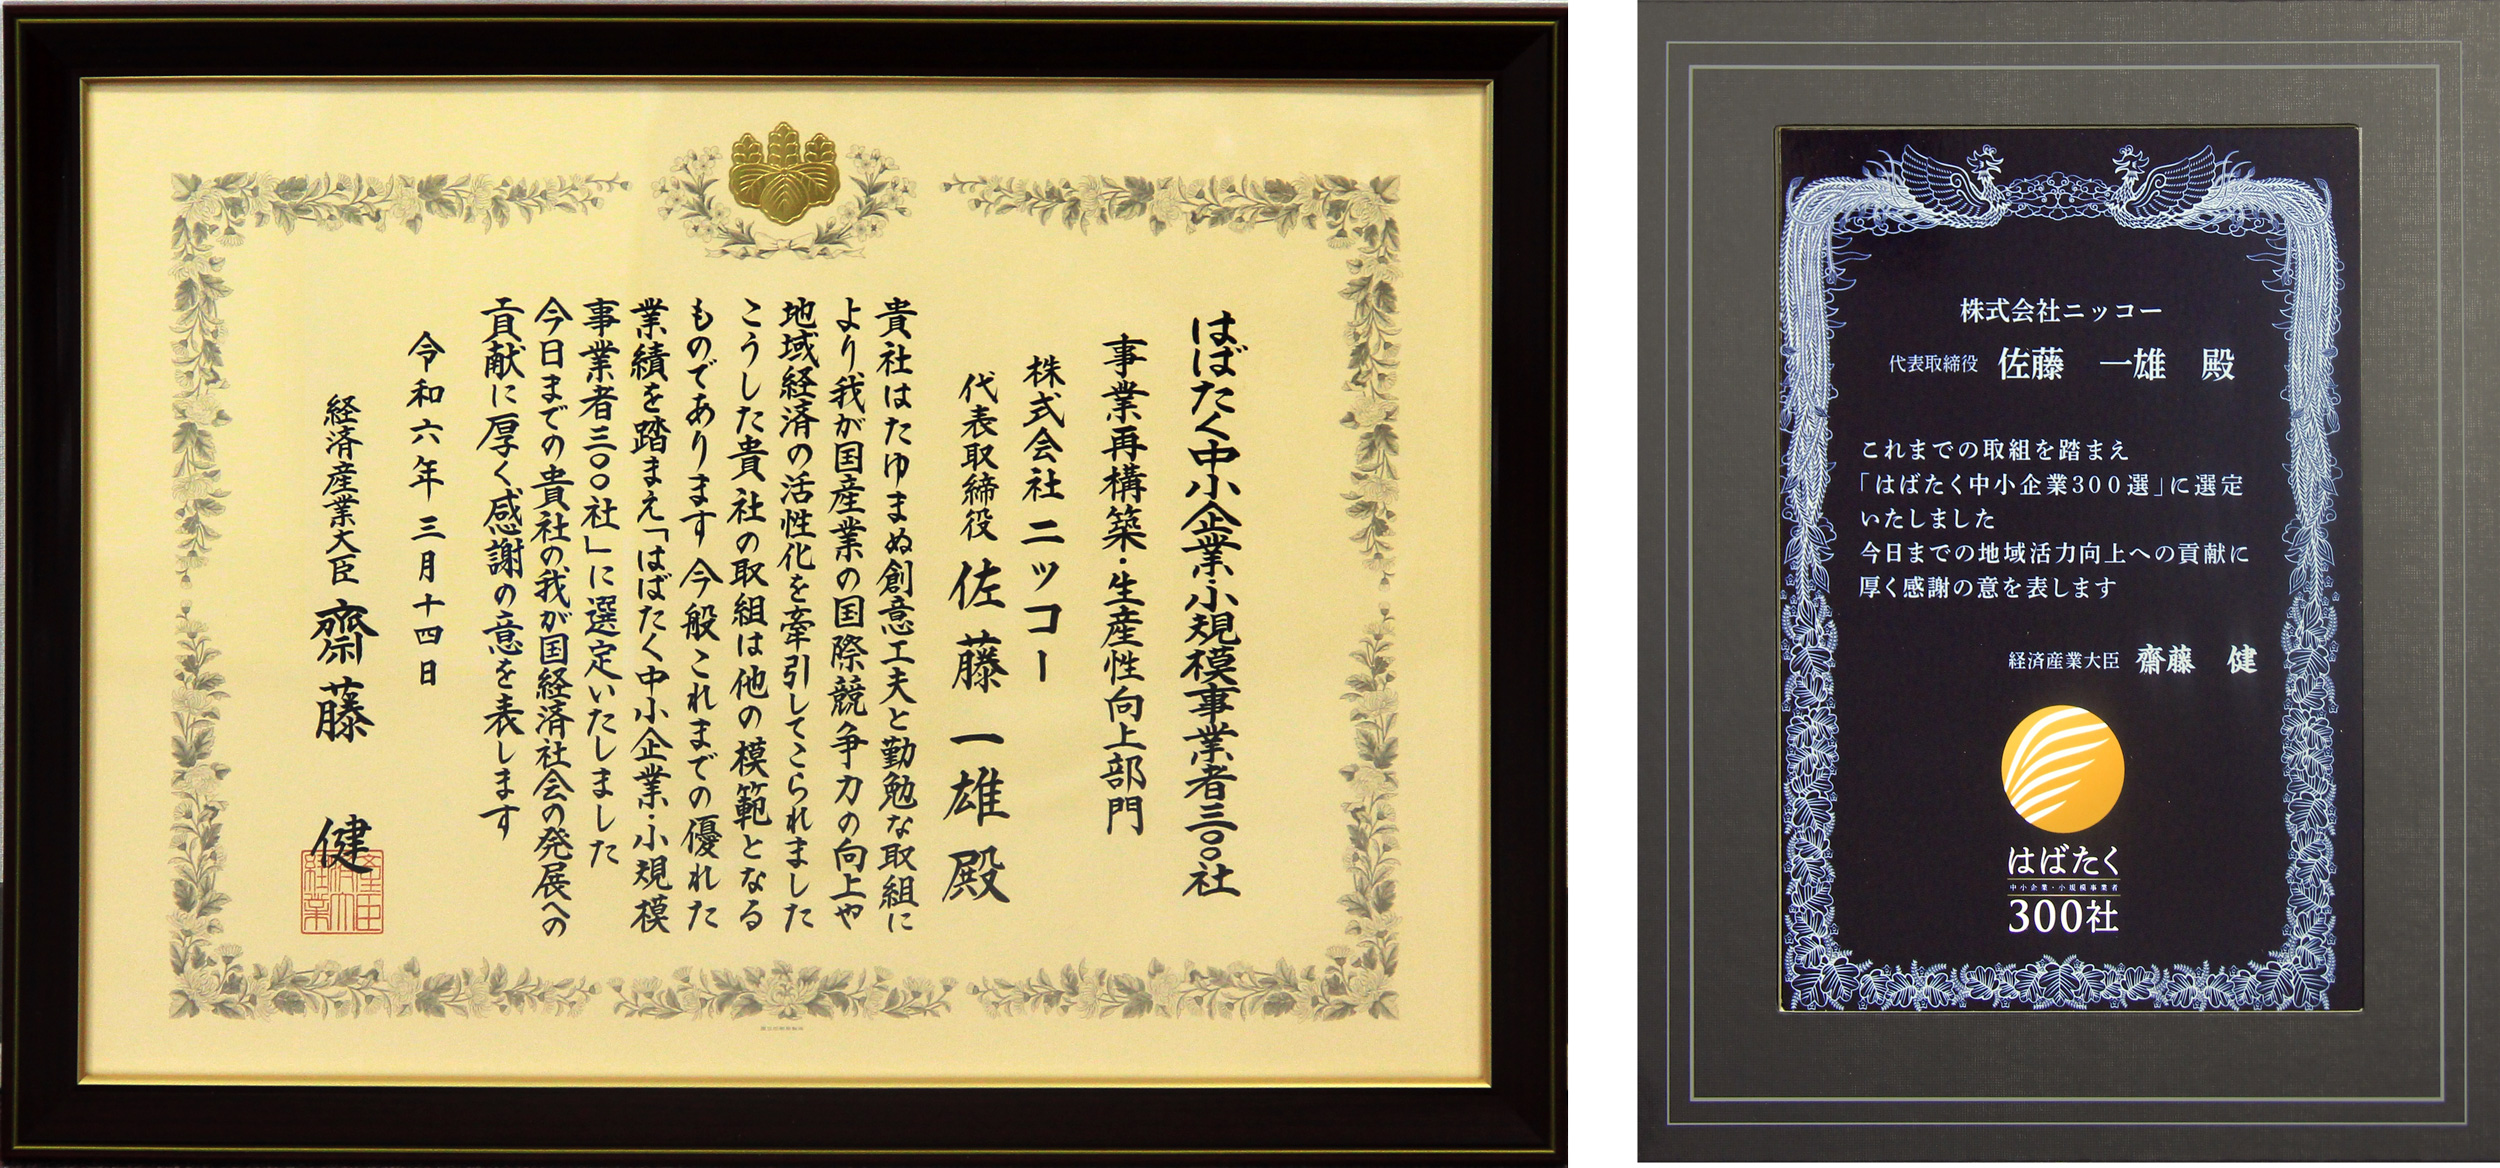 はばたく中小企業・小規模事業者三〇〇社
事業再構築・生産性向上部門
株式会社ニッコー
代表取締役 佐藤一雄殿
貴社はたゆまぬ創意工夫と勤勉な取組に
より我が国産業の国際競争力の向上や
地域経済の活性化を牽引してこられました
こうした貴社の取組は他の模範となる
ものであります今般これまでの優れた
業績を踏まえ「はばたく中小企業・小規模
事業者三〇〇社」に選定いたしました
今日までの貴社の、我が国経済社会の発展への
貢献に厚く感謝の意を表します
令和六年三月十四日
経済産業大臣 齋藤 健
株式会社ニッコー
代表取締役 佐藤 一雄 殿
これまでの取組を踏まえ
「はばたく中小企業300選」に選定
いたしました
今日までの地域活力向上への貢献に
厚く感謝の意を表します
経済産業大臣 齋藤 健
はばたく
中小企業・小規模事業者
300社